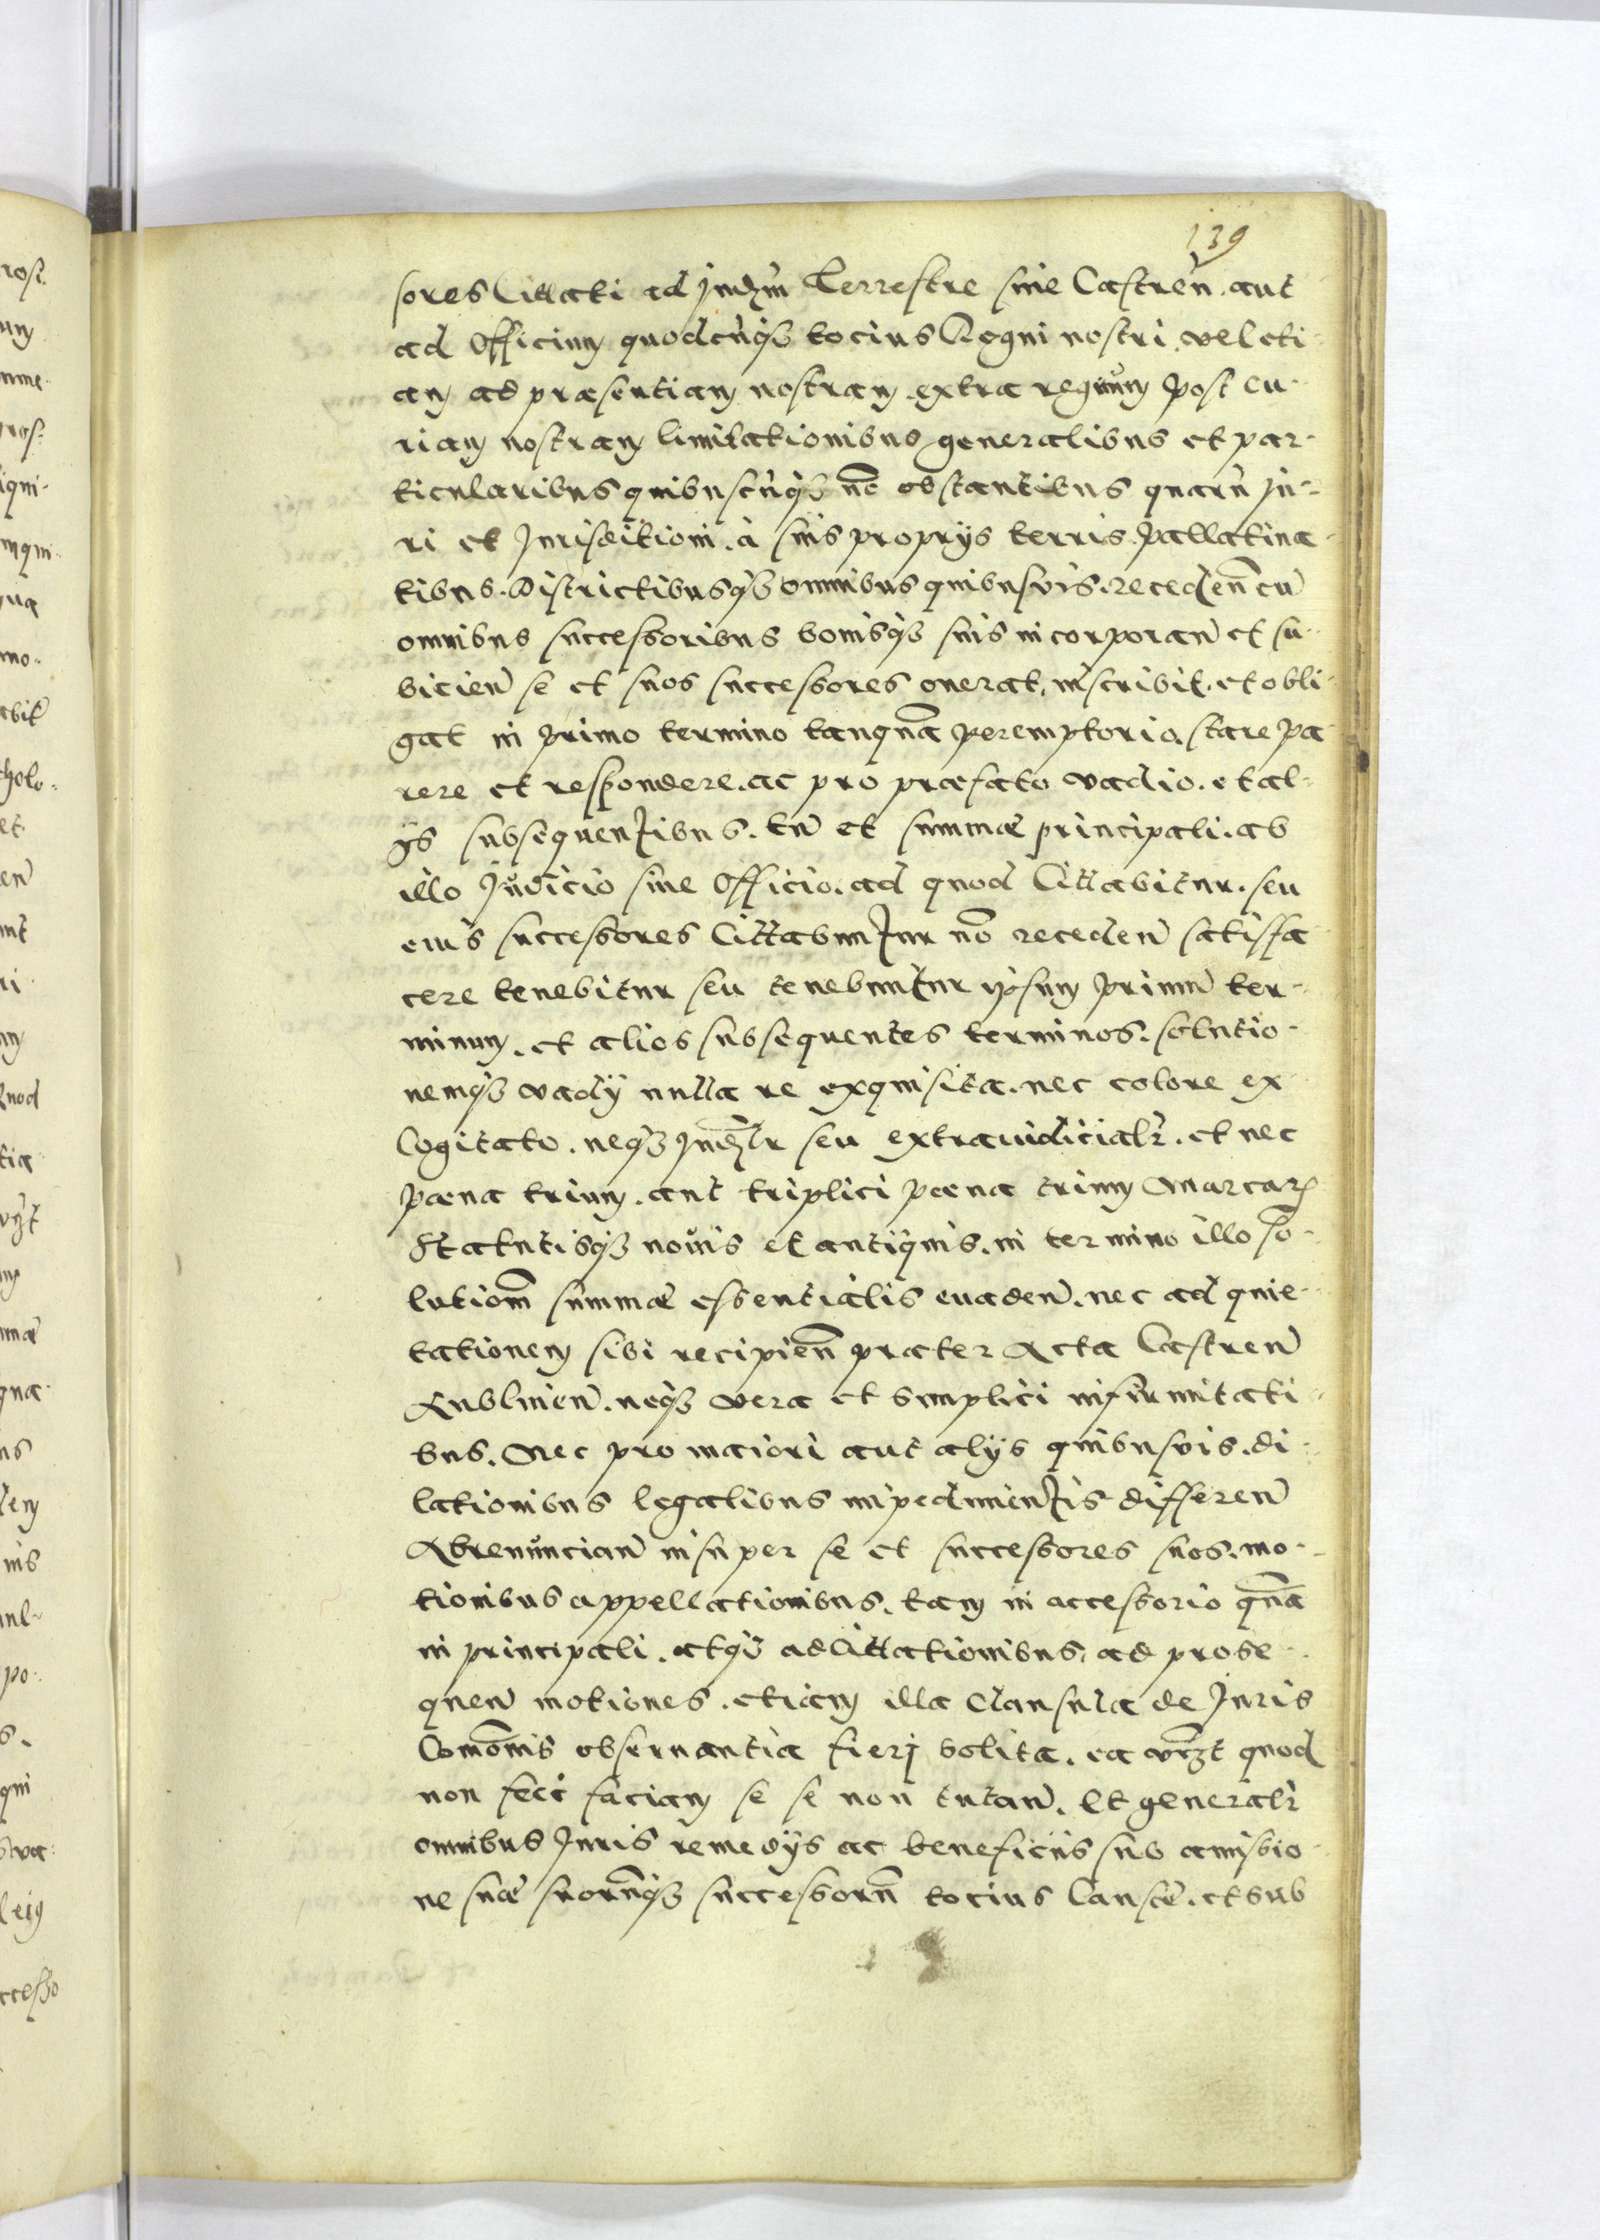 139
sores Cittati ad Judm Terrestre siue Castren̄. aut
ad Officium quodcunq3 tocius Regni nostri. vel eti-
am ad præsentiam nostram. extra regnum post cu-
riam nostram limitationibus generalibus et par-
ticularibus quibuscunq3 nō obstantibus quarū Ju-
ri et Jurisditioni. à suis proprys terris. Pallatina-
tibus. Districtibusq3 omnibus quibusvis. recedēn cū
omnibus successoribus bonisq3 suis incorporan̄ et su-
bicien̄ se et suos successores onerat, inscribit. et obli-
gat in primo termino tanquā peremptorio. stare pa-
rere et respondere. ac pro præfato vadio. et al-
ÿs subsequentibus. tn̄ et summæ principali. ab
illo Judicio siue Officio. ad quod Cittabitur. seu
eius successores Cittabuntur nō receden̄ satisfa-
cere tenebitur seu tenebuntur ipsum primū ter-
minum. et alios subsequentes terminos. solutio-
nemq3 vadÿ nulla re exquisita. nec colore ex-
Cogitato. neq3 Judlr seu extraiudicialr. et nec
pæna trium. aut triplici pæna trium Marcar
Statutisq3 nouis et antiquis. in termino illo so-
lutiōm summæ essentialis euaden̄. nec ad quie-
tationem sibi recipiēn præter Acta Castren̄
Lublinen̄. neq3 vera et simplici infirmitati-
bus. Nec pro maiori aut alÿs quibusvis. di-
lationibus legalibus impedimentis differen̄
Abrenuncian̄ insuper se et successores suos. mo-
tionibus appellationibus. tam in accessorio quā
in principali. atq3 adcittationibus, ad prose-
quen̄ motiones. etiam illa Clausula de Juris
Comōnis obseruantia fierj solita. ea vr̄zt quod
non feci faciam se se non tutan̄. Et generalr
omnibus Juris remedÿs ac beneficiis sub amissio-
ne suæ suorūnq3 successorūn tocius Causæ. et sub